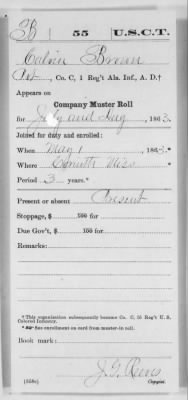 B | 55 | U.S.C.T.
Calvin Brown
Pvt, Co. C, 1 Reg't Ala. Inf., A. D.†
Appears on
Company Muster Roll
for July and Aug, 1863.
Joined for duty and enrolled:
When May 1, 1863.*
Where Corinth Miss
Period 3 years.*
Present or absent Present
Stoppage, $ 100 for
Due Gov't, $ 100 for
Remarks:
†This organization subsequently became Co. C, 55 Reg't U. S.
Colored Infantry.
* See enrollment on card from muster-in roll.
Book mark:
J. G. Reeves
(358c) Copyist.